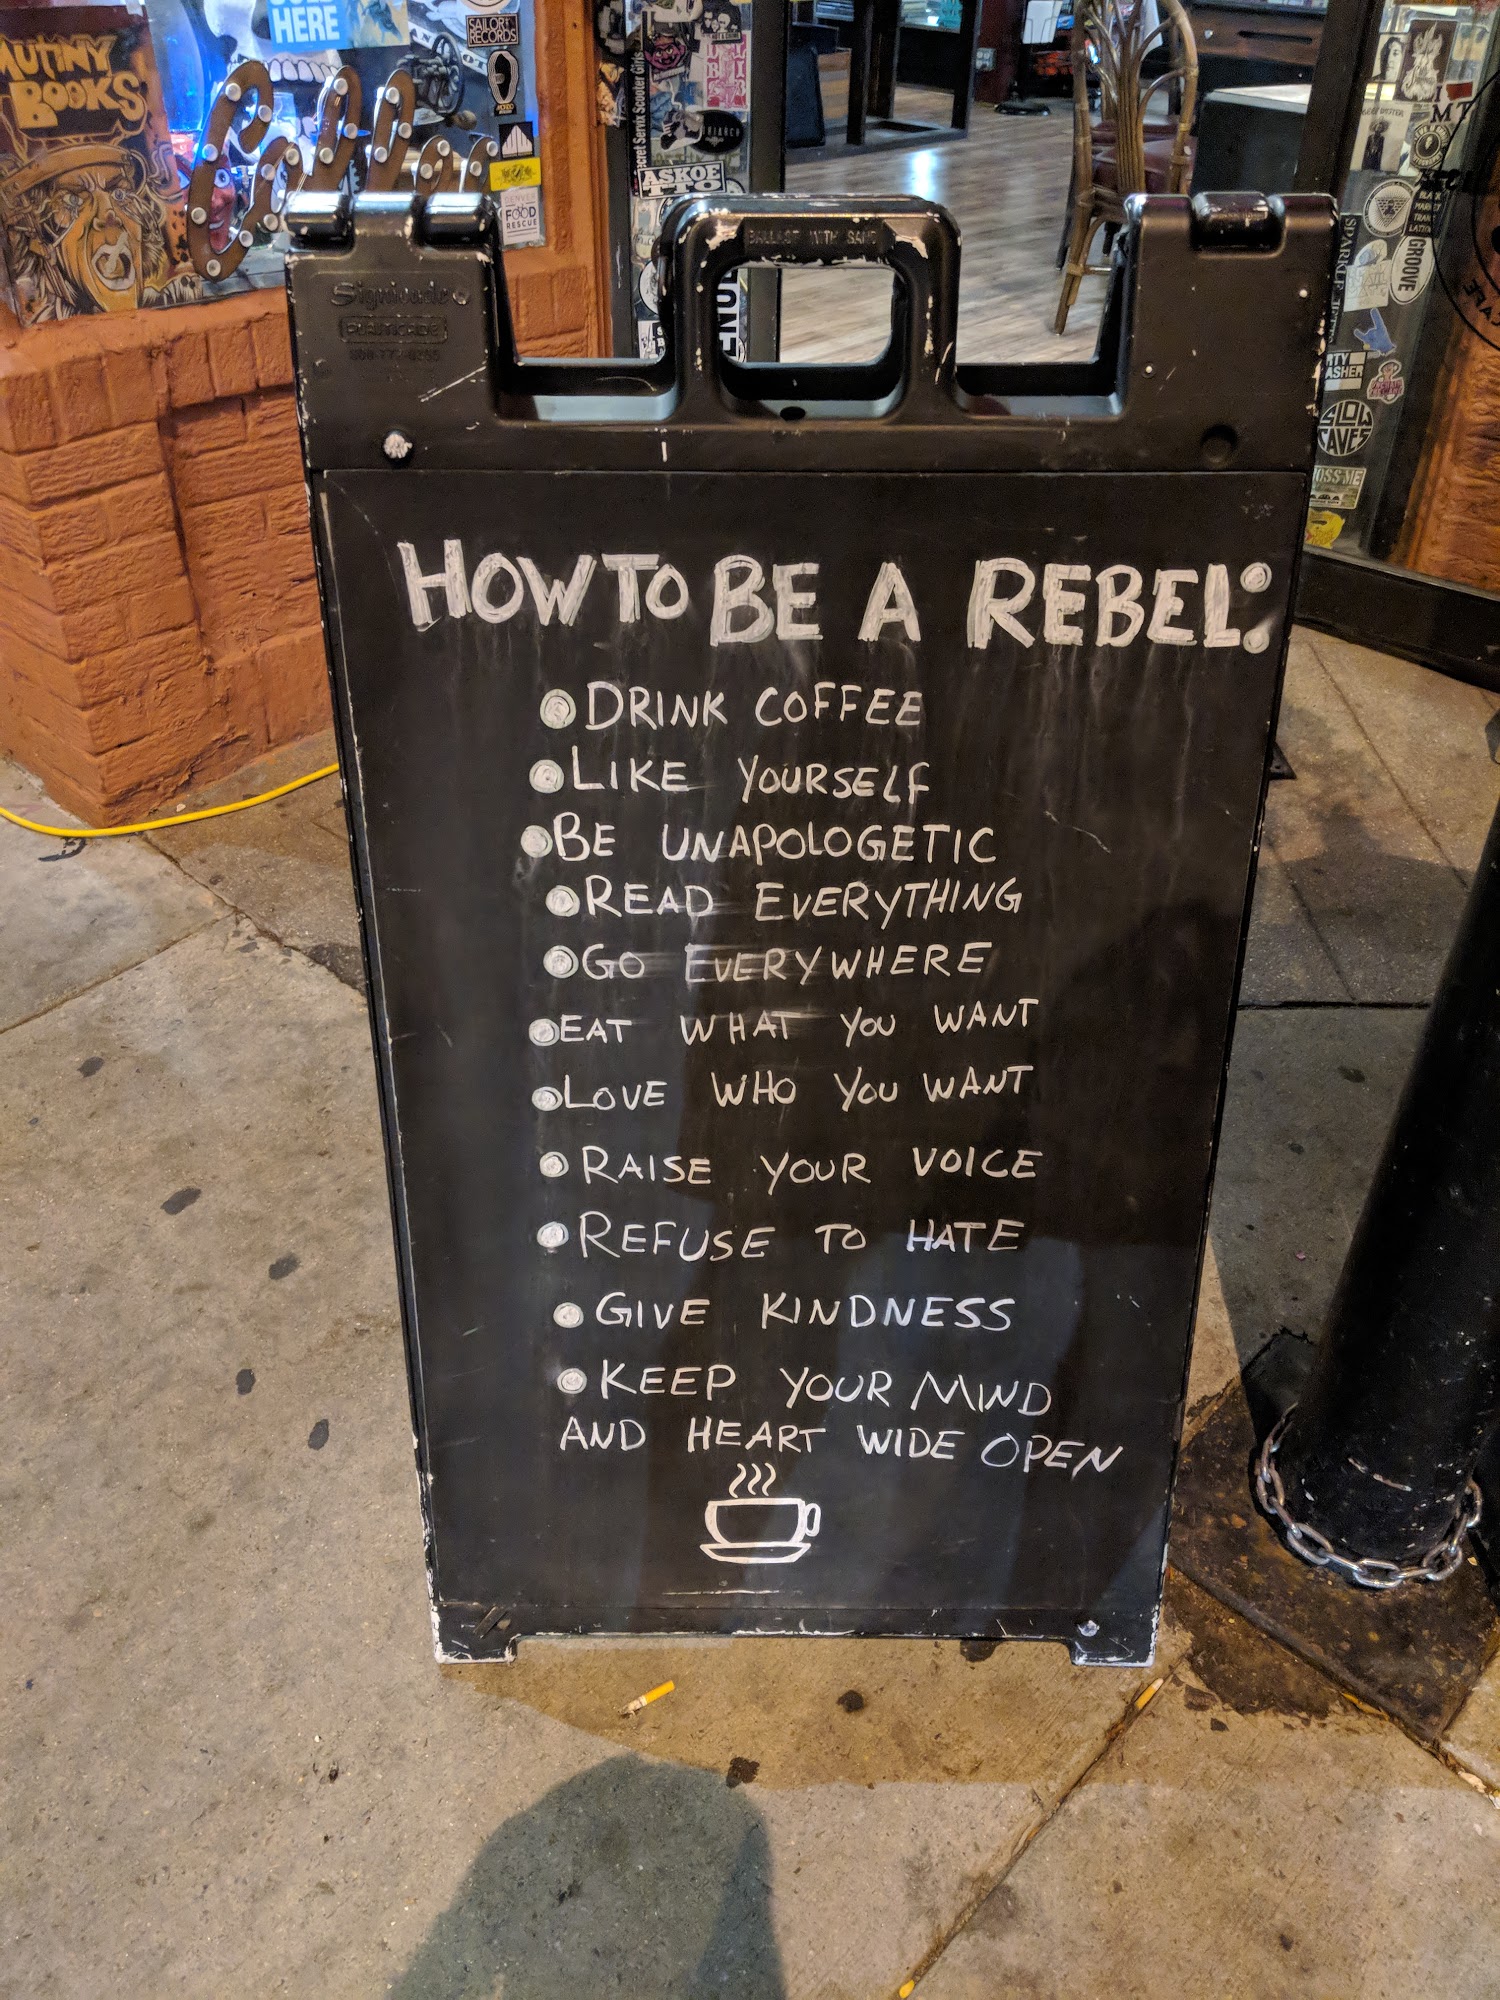 MUTINY
BOOKS
HERE
SAILOR
RECORDS
Coffee
DENVER
FOOD
RESCUE
Secret Servix Scooter Girls
ASKOE
BALLAST WITH SAND
Signicade
GROOVE
SLOW
CAVES
HOW TO BE A REBEL:
• DRINK COFFEE
• LIKE YOURSELF
• BE UNAPOLOGETIC
• READ EVERYTHING
• GO EVERYWHERE
• EAT WHAT YOU WANT
• LOVE WHO YOU WANT
• RAISE YOUR VOICE
• REFUSE TO HATE
• GIVE KINDNESS
• KEEP YOUR MIND
AND HEART WIDE OPEN